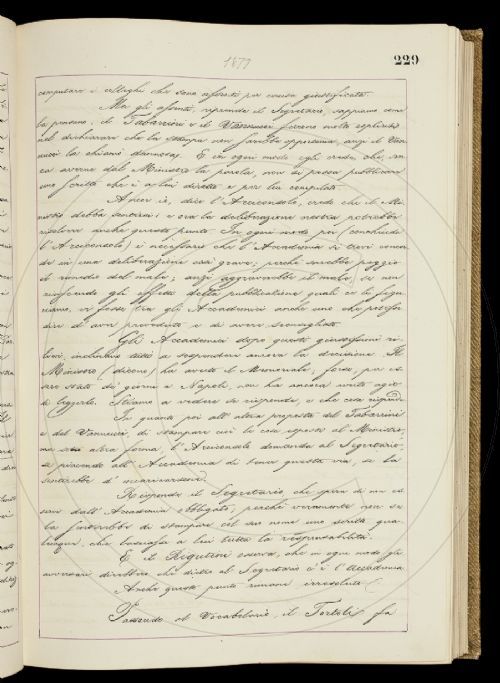 1877
229
computare i colleghi che sono assenti per causa giustificata.
Ma gli assenti, riprende il Segretario, sappiamo come
la pensano; il Tabarrini e il Vannucci furono molto espliciti
nel dichiarare che la stampa non sarebbe opportuna, anzi il Van
nucci la chiamò dannosa. E in ogni modo egli crede, che, sen
za averne dal Ministro la parola, non si possa pubblicare
uno scritto che è a lui diretto e per lui compilato.
Ancor io, dice l'Arciconsolo, credo che il Mi
nistro debba sentirsi; e ora la deliberazione nostra potrebbe
risolvere anche questo punto. In ogni modo poi (conchiude
l'Arciconsolo) è necessario che l'Accademia si trovi concor
de in una deliberazione così grave; perché sarebbe peggio
il rimedio del male; anzi aggraverebbe il male, se non
rispondendo gli effetti della pubblicazione quali ce li figu
riamo, vi fosse tra gli Accademici anche uno che potesse
dire di aver preveduto e di avere sconsigliato.
Gli Accademici dopo questi giustissimi ri
lievi, inclinano tutti a sospendere ancora la decisione. Il
Ministro (dicono) ha avuto il Memoriale; forse, per es
sere stato de' giorni a Napoli, non ha ancora avuto agio
di leggerlo. Stiamo a vedere se risponde, e che cosa risponde.
In quanto poi all'altra proposta del Tabarrini
e del Vannucci, di stampare cioè le cose esposte al Ministro,
ma sotto altra forma, l'Arciconsolo domanda al Segretario,
se piacendo all'Accademia di tener questa via, se la
sentirebbe d'incaricarsene.
Risponde il Segretario, che spera di non es
sere dall'Accademia obbligato; perché veramente non se
la sentirebbe di stampare col suo nome una scritta qua
lunque, che lasciasse a lui tutta la responsabilità.
E il Rigutini osserva, che in ogni modo gli
avversari direbbero che dietro al Segretario c'è l'Accademia.
Anche questo punto rimane irresoluto.
Passando al Vocabolario, il Tortoli fa